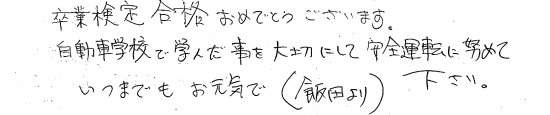 卒業検定 合格 おめでとうございます。
自動車学校で学んだ事を大切にして安全運転に努めて下さい。
いつまでもお元気で(飯田より)